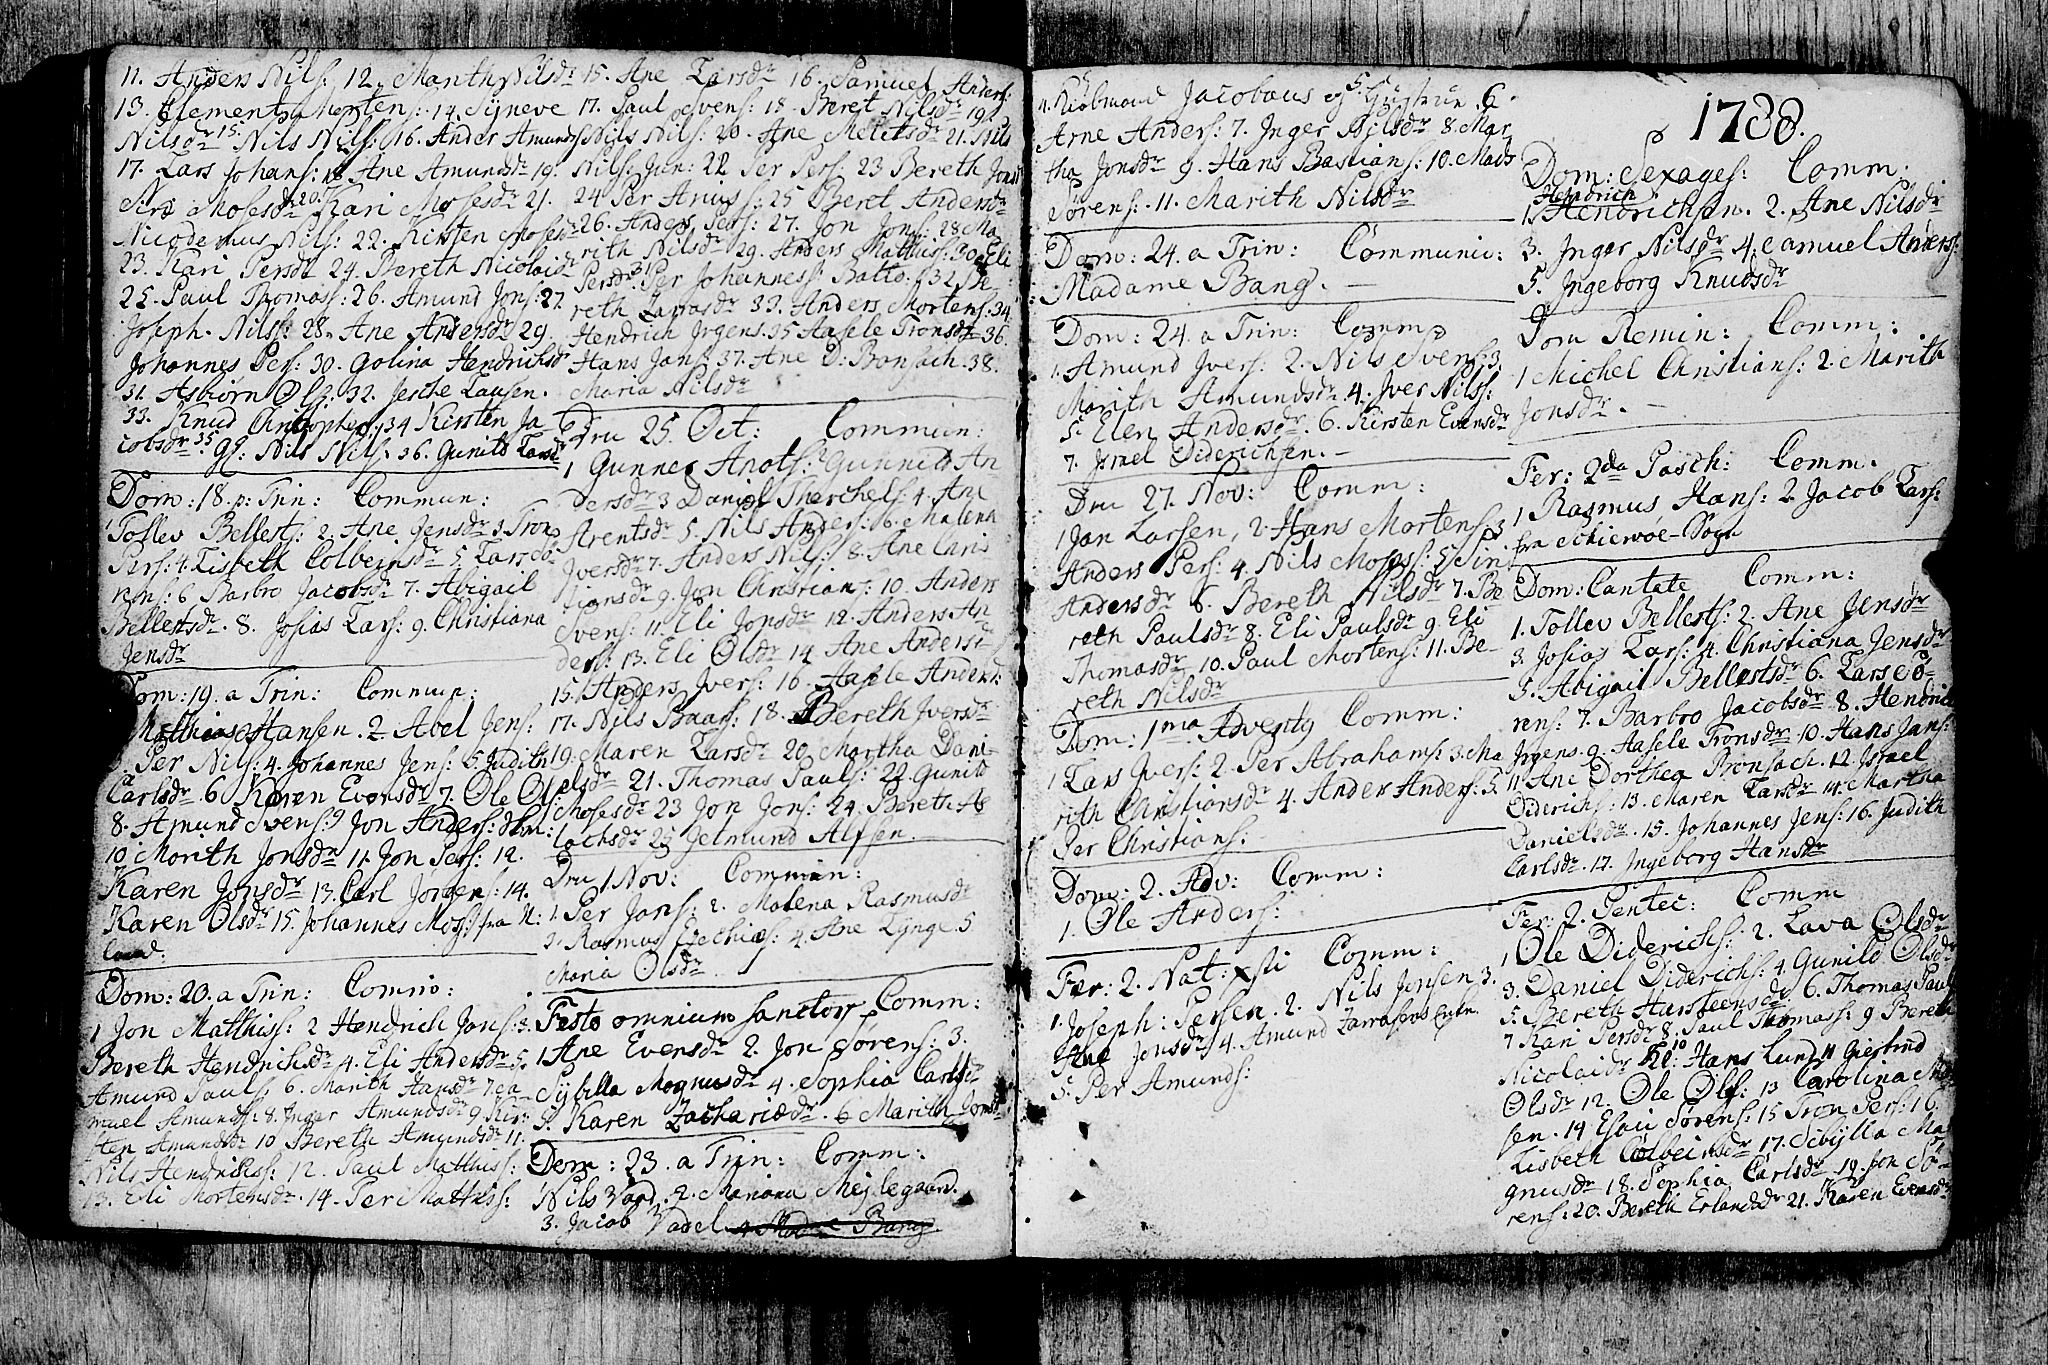 11. Anders Nils: 12. Marith Nilsdr
13. Clement Morten: 14. Syneve
Nilsdr 15. Nils Nils: 16. Ander Amunds
17. Lars Johans: 18 Ane Amundsdr 19.
Siri Mosesdr 20. Kari Mosesdr 21.
Nicodemus Nils: 22. Kirsten Mosesdr
23. Kari Persdr 24. Bereth Nicolaisdr
25. Paul Thomass: 26. Amund Jons: 27.
Joseph Nilss: 28. Ane Andersdr 29.
Johannes Pers: 30. Golina Hendrichsdr
31. Asbiörn Ols: 32. Jesche Lausen.
33. Knud Christophers: 34 Kirsten Ja-
cobsdr 35. Nils Nils: 36. Gunild Larsdr
Dom: 18. p: Trin: Commun:
1 Tollev Bellests: 2. Ane Jensdr 3 Tron
Pers: 4. Lisbeth Colbeinsdr 5. Lars Sö-
rens: 6 Barbro Jacobsdr 7. Abigail
Bellestsdr. 8. Josias Lars: 9. Christiana
Jensdr
Dom: 19. a Trin: Commun:
Matthias Hansen. 2 Abel Jens:
3. Per Nils: 4. Johannes Jens: 5 Judith
Carlsdr. 6 Karen Evensdr 7. Ole Ols:
8. Amund Svens: 9 Jon Anders:
10 Marith Jonsdr 11. Jon Pers: 12.
Karen Jonsdr 13. Carl Jörgens: 14.
Karen Olsdr 15. Johannes Mos: fra H:
land.
Dom: 20. a Trin: Comm:
1 Jon Matthiss: 2 Hendrich Jons: 3.
Bereth Hendrichsdr 4. Eli Andersdr 5.
Amund Pauls: 6. Marith Hansdr 7. Sa-
muel Amunds: 8. Inger Amundsdr 9 Kir-
sten Amundsdr 10 Bereth Amundsdr 11.
Nils Hendrichss: 12. Paul Matthiss:
13. Eli Mortensdr. 14. Per Matthiss:
15. Ane Larsdr 16. Samuel Anders:
17. Paul Svens: 18. Beret Nilsdr 19.
Nils Nils: 20. Ane 21. Nils
Nils: Jun: 22 Per Pers: 23 Bereth Jonsdr
24 Per Arius: 25 Beret Andersdr
26. Anders Pers: 27. Jon Jons: 28 Ma-
rith Nilsdr 29. Anders Matthiss: 30. Eli
Persdr 31. Per Johanness: Batto: 32 Be-
reth Larsdr 33. Anders Mortens: 34.
Hendrich Jrgens. 35 Aasele Tronsdr 36.
Hans Jans: 37. Ane D: Bonsach. 38.
Maria Nilsdr
Dru 25. Oct: Commun:
1 Gunner Arots: 2 Gunnild An
dersdr 3 Daniel Therchels: 4. Ane
Arentsdr 5. Nils Anders: 6. Malena
Jversdr 7. Anders Nils: 8. Ane Chris
tiansdr 9. Jon Christians: 10. Anders
Svens: 11. Eli Jonsdr 12. Anders An
ders: 13. Eli Olsdr 14. Ane Andersdr
15. Anders Jvers: 16. Aasele Andersdr:
17. Nils Baars: 18. Bereth Jversdr
19. Maren Larsdr 20. Martha Dani-
elsdr 21. Thomas Pauls: 22. Gunild
Mosesdr 23 Jon Jons: 24. Bereth As
lachsdr 25 Jetmund Alfsen.
Dru 1 Nov: Commun:
1. Per Jans: 2. Malena Rasmusdr
3. Rasmus Ezechias: 4. Ane Lÿnge. 5
Maria Olsdr
Festo omnium sanctor Comm:
1 Ane Evensdr 2. Jon Sörens: 3.
Sybilla Magnusdr 4. Sophia Carlsdr
5. Karen Zachariædr. 6 Marith Jonsdr
Dom: 23. a Trin: Comm:
1 Nils Vard. 2. Mariana Mejlegaard.
3. Jacob Vadel 4. Madme Bang.
4. Kiöbmand Jacobæus og 5. 6.
Arne Anders: 7. Inger Nilsdr 8. Mar
tha Jonsdr 9. Hans Bastians: 10. Mads
Sörens: 11. Marith Nilsdr
Dom: 24. a Trin: Communic:
Madame Bang.
Dom: 24. a Trin: Comm
1. Amund Jvers: 2. Nils Svens: 3.
Marith Amundsdr. 4. Jver Nilss:
5. Elen Andersdr. 6. Kirsten Evensdr
7. Jsrael Diderichsen.
Dru 27. Nov: Comm:
1 Jan Larsen, 2 Hans Mortens: 3
Anders Pers: 4. Nils Moses: 5 Siri
Andersdr 6. Bereth Nilsdr 7. Be
reth Paulsdr 8. Eli Paulsdr 9. Eli
Thomasdr 10. Paul Mortens: 11. Be-
reth Nilsdr
Dom: 1ma Adventg Comm:
1 Lars Jvers: 2. Per Abrahams: 3. Ma
rith Christiansdr 4. Ander Anders: 5.
Per Christians:
Dom: 2. Adv: Comm:
1. Ole Anders:
Fer: 2. Nat: Xsti Comm:
1. Joseph: Persen. 2. Nils Jonsen 3.
Ane Jonsdr 4. Amund
5. Per Amunds:
1788.
Dom: Sexages: Comm:
Hendrich
1. Hendrichsen. 2. Ane Nilsdr
3. Inger Nilsdr 4. Samuel Anders:
5. Jngeborg Knudsdr
Dom Remin: Comm:
1 Michel Christians: 2. Marith
Jonsdr.
Fer: 2da Pasch: Comm.
1 Rasmus Hans: 2 Jacob Lars:
fra Schiervöe-Sogn
Dom: Cantate Comm:
1. Tollev Bellests: 2. Ane Jensdr
3. Josias Lars: 4. Christiana Jensdr
5. Abigail Bellestsdr 6. Lars Sö-
rens: 7. Barbro Jacobsdr 8. Hendric
Jrgens. 9. Aasele Tronsdr 10. Hans Jans:
11. Ane Dorthea Bonsach. 12. Jsrael
Diderichs: 13. Maren Larsdr 14. Martha
Danielsdr. 15. Johannes Jens: 16. Judith
Carlsdr. 17. Ingeborg Hansdr
Fer: 2. Pentec: Comm
1 Ole Diderichs: 2. Lava Olsdr
3. Daniel Diderichs: 4. Gunild Olsdr
5. Bereth Harsteensdr 6. Thomas Paul
7 Kari Persdr 8. Paul Thomass: 9 Bereth
Nicolaidr 10 Kl: Hans Lund 11 Gjertrud
Olsdr 12. Ole Ols: 13 Carolina
sen. 14 Esau Sörens: 15 Tron Pers: 16.
Lisbeth Colbeinsdr 17. Sibylla Ma
gnusdr 18. Sophia Carlsdr 19. Jon Sö-
rens: 20. Bereth Erlandsdr 21. Karen Evensdr